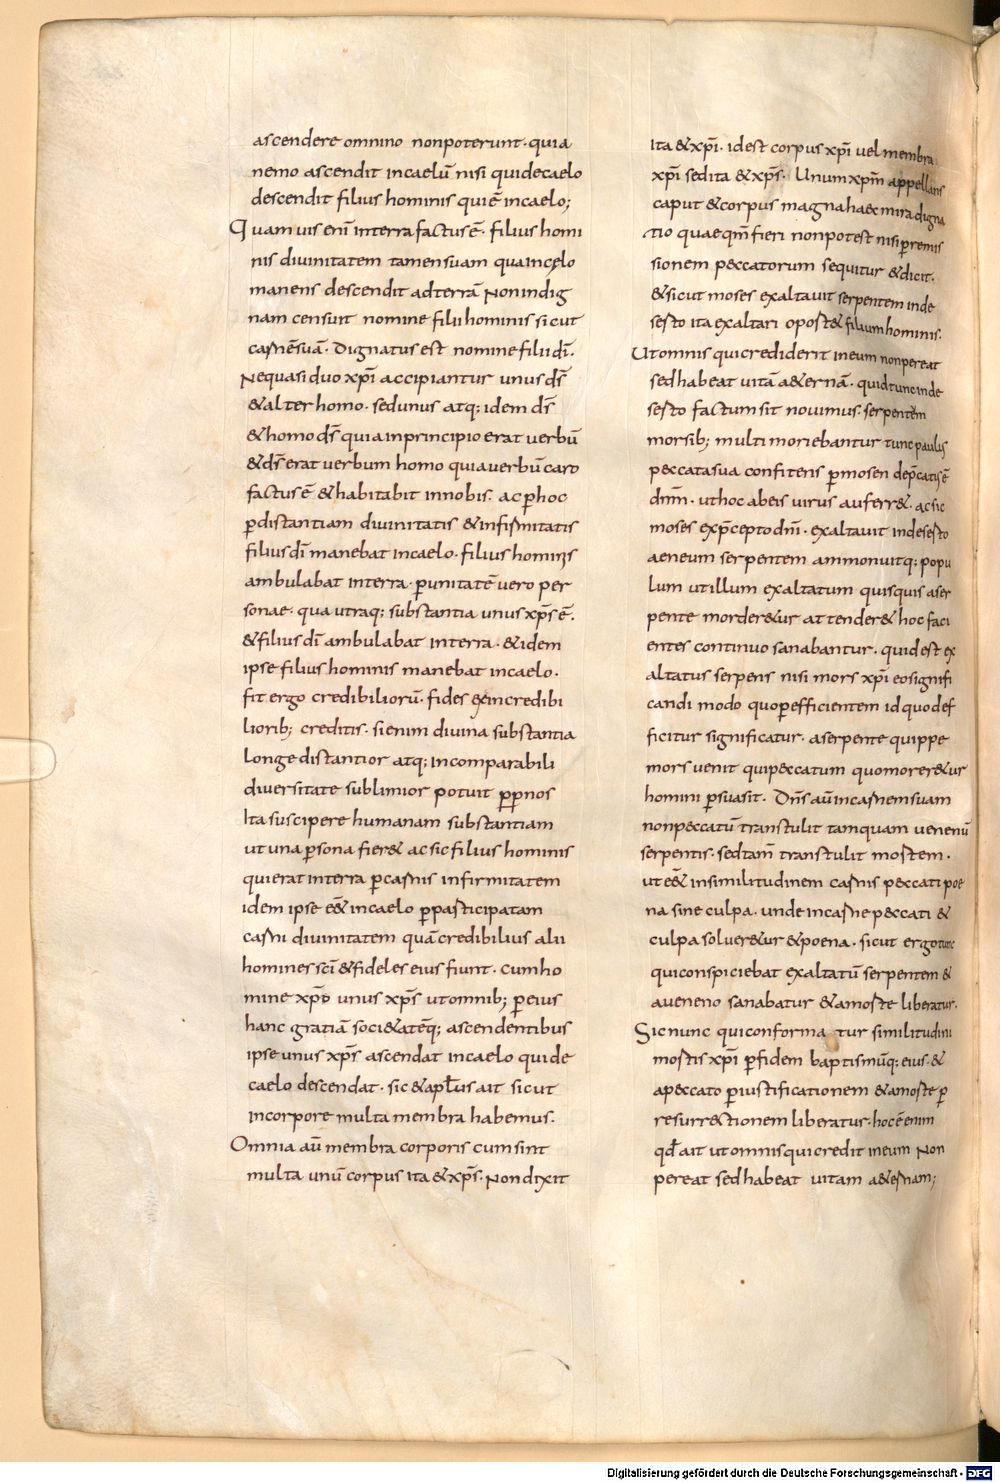 ascendere omnino nonpoterunt· quia
nemo ascendit incaelū nisi quidecaelo
descendit filius hominis quiē incaelo;
Quam uis enī interra factus ē· filius homi
nis diuinitatem tamen suam qua incęlo
manens descendit ad terrā Non indig
nam censuit nomine filii hominis sicut
carnē suā· Dignatus est nomine filii dī·
Ne quasi duo xp̄i accipiantur unus d̄s
& alter homo· sed unus atq; idem d̄s
& homo d̄s quia inprincipio erat uerbū
& d̄s erat uerbum homo quia uerbū caro
factus ē & habitabit innobis· ac p̄ hoc
p̄distantiam diuinitatis & infirmitatis
filius dī manebat incaelo· filius hominis
ambulabat interra· p̄unitatē uero per
sonae· qua utraq; substantia unus xp̄s ē·
& filius dī ambulabat interra· & idem
ipse filius hominis manebat incaelo·
fit ergo credibiliorū· fides ex incredibi
liorib; creditis· si enim diuina substantia
longe distantior atq; incomparabili
diuersitate sublimior potuit p̄p̄ nos
Ita suscipere humanam substantiam
ut una p̄sona fier& ac sic filius hominis
qui erat interra p̄carnis infirmitatem
idem ipse ēē& incaelo p̄participatam
carni diuinitatem quā credibilius alii
homines sc̄i & fideles eius fiunt· cum ho
mine xp̄o unus xp̄s ut omnib; p̄ eius
hanc gratiā soci&atēq; ascendentibus
ipse unus xp̄s ascendat incaelo qui de
caelo descendat· sic & apłus ait sicut
incorpore multa membra habemus·
Omnia aū membra corporis cum sint
multa unū corpus ita & xp̄s· Non dixit
ita & xp̄i· id est corpus xp̄i uel membra
xp̄i sed ita & xp̄s· Unum xp̄m appellans
caput & corpus magna haec mira digna
tio quae qm̄ fieri non potest nisi p̄ remis
sionem peccatorum sequitur & dicit·
& sicut moses exaltauit serpentem inde
serto ita exaltari oport& filium hominis·
Ut omnis qui crediderit in eum non pereat
sed habeat uitā a&ernā· quid tunc inde
serto factum sit nouimus· serpentēm
morsib; multi moriebantur tunc paulis
peccata sua confitens p̄ mosen dep̄catis ē
dnm̄· ut hoc ab eis uirus auferr&· ac sic
moses exp̄cepto dn̄i· exaltauit indeserto
aeneum serpentem ammonuitq; popu
lum ut illum exaltatum quisquis a ser
pente morder&ur at tender& hoc faci
entes continuo sanabantur· quid est ex
altatus serpens nisi mors xp̄i eo signifi
candi modo quo p̄ efficientem id quod ef
ficitur significatur· a serpente quippe
mors uenit qui peccatum quo morer&ur
homini p̄suasit· Dn̄s aū incarnem suam
non peccatū transtulit tamquam uenenū
serpentis· sed tam̄ transtulit mortem·
ut ēē& insimilitudinem carnis peccati poe
na sine culpa· unde incarne peccati &
culpa soluer&ur & poena· sicut ergo tunc
qui conspiciebat exaltatū serpentem &
a ueneno sanabatur & a morte liberatur·
Sic nunc qui conforma tur similitudini
mortis xp̄i p̄ fidem baptismūq; eius· &
a peccato p̄ iustificationem & a morte p̄
resurrectionem liberatur· hoc ē enim
qđ ait ut omnis qui credit in eum Non
pereat sed habeat uitam a&ernam;
Digitalisierung gefördert durch die Deutsche Forschungsgemeinschaft - DFG